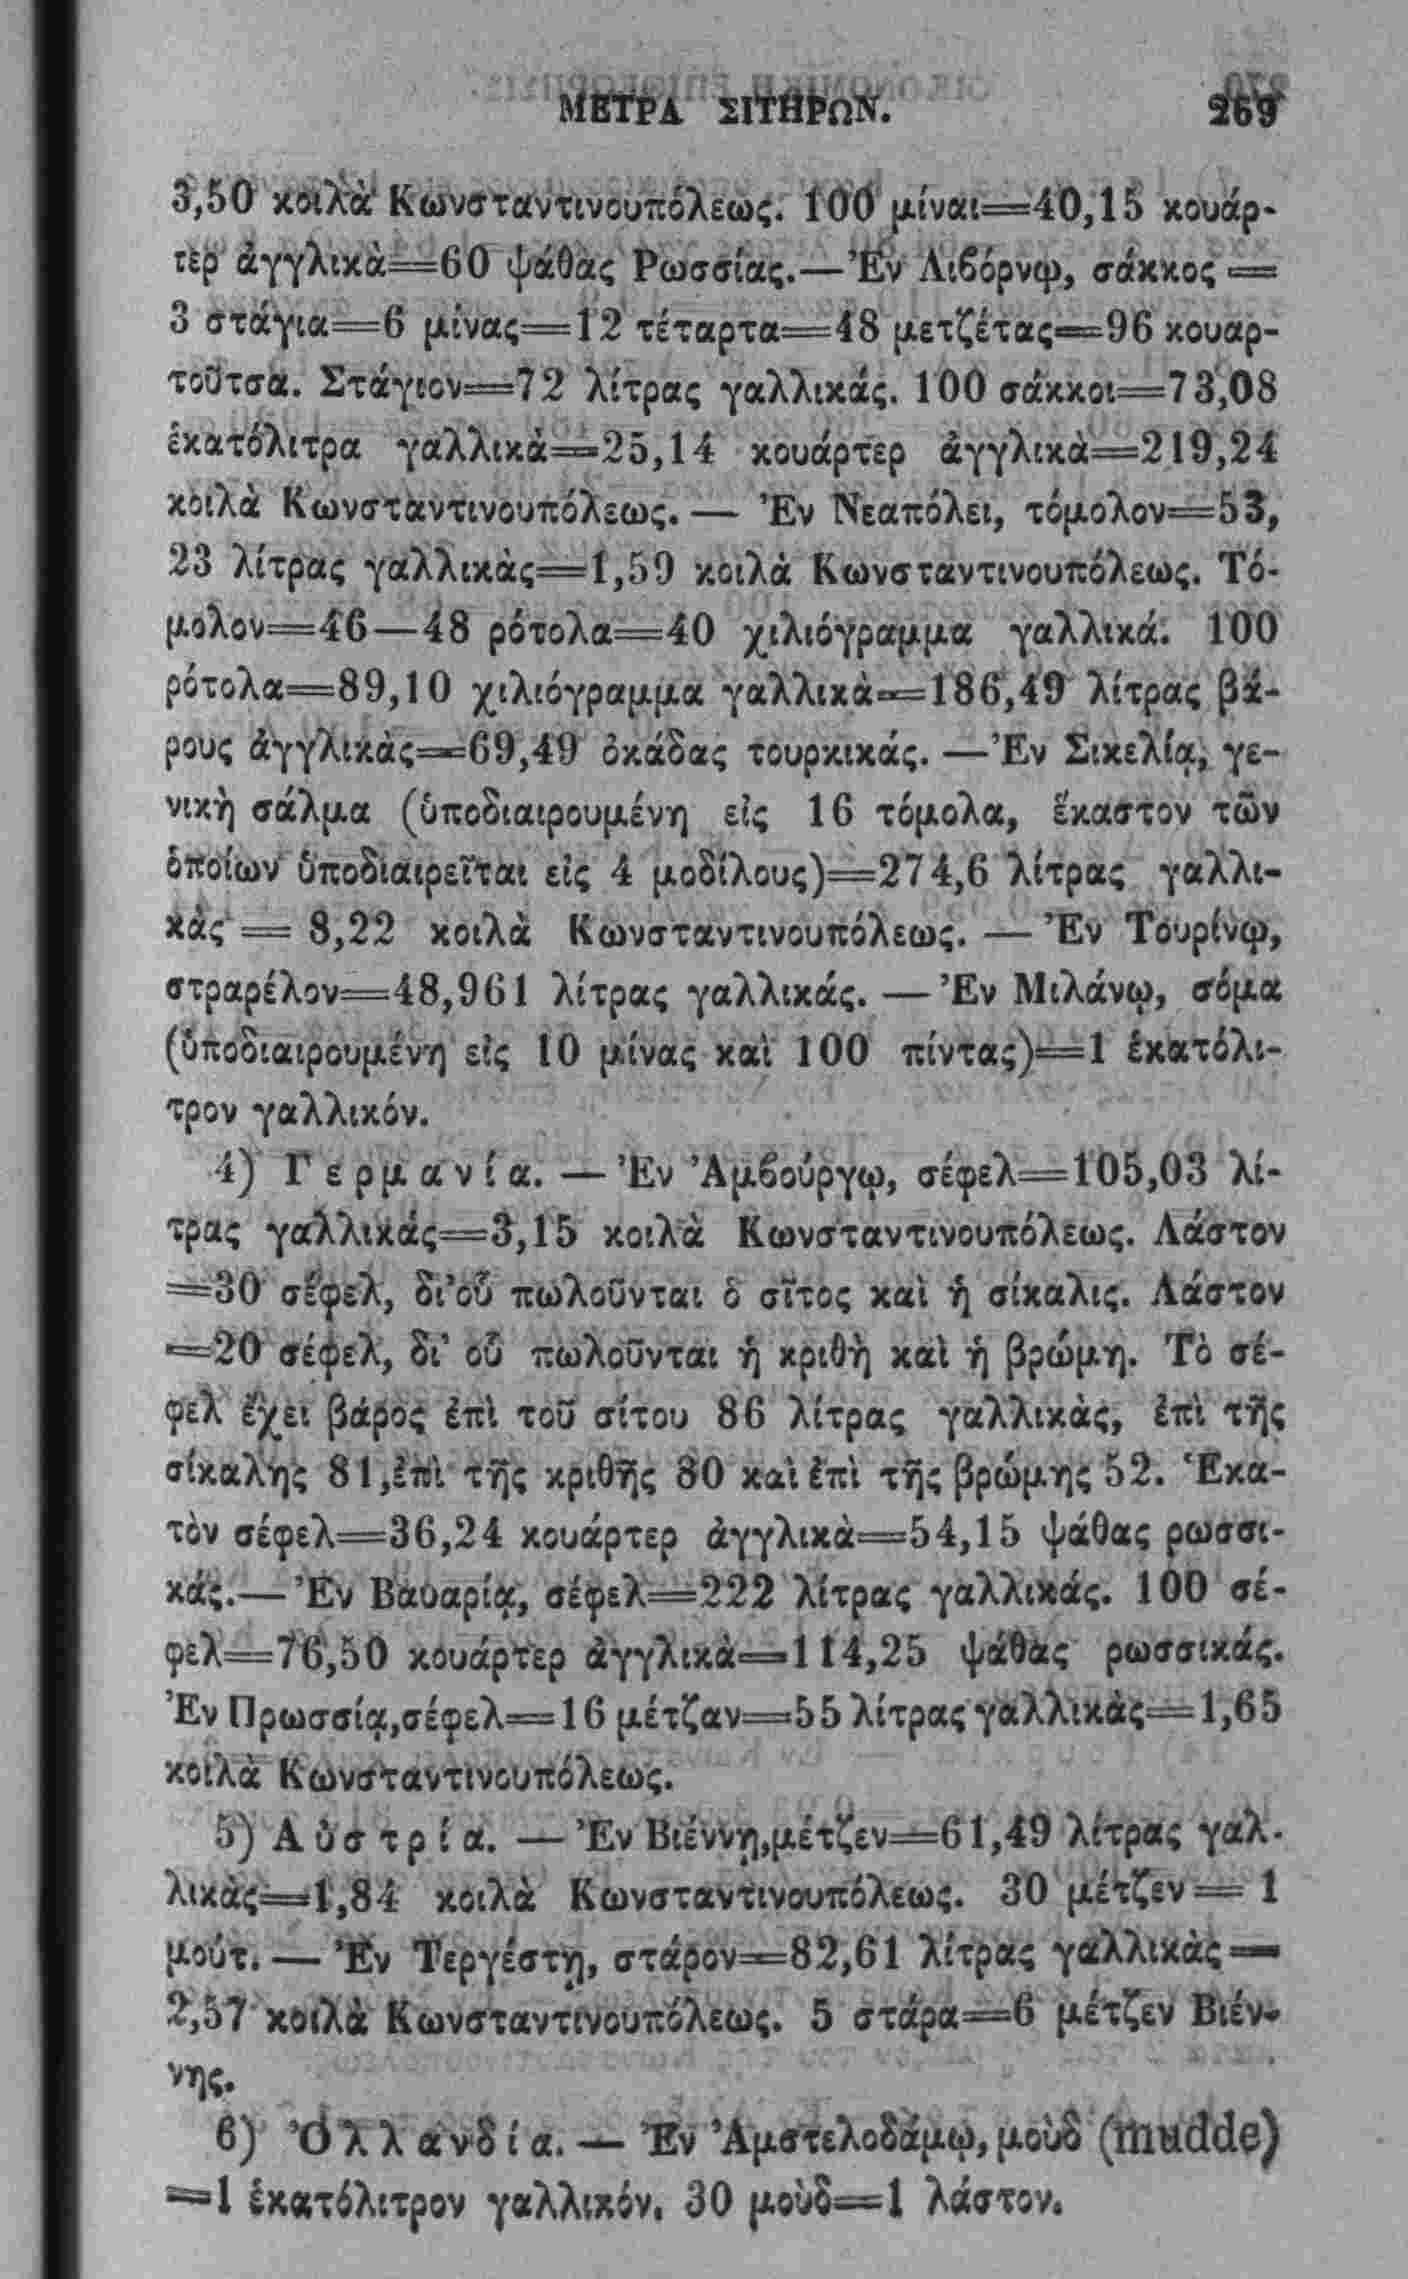 ΜΕΤΡΑ ΣΙΤΗΡΩΝ. 269
3,50 κοιλὰ Κωνσταντινουπόλεως. 100 μίναι=40,15 κουάρ-
τερ ἀγγλικὰ=60 ψάθας Ρωσσίας.—Ἐν Λιβόρνῳ, σάκκος =
3 στάγια=6 μίνας=12 τέταρτα=48 μετζέτας=96 κουαρ-
τοῦτσα. Στάγιον=72 λίτρας γαλλικάς. 100 σάκκοι=73,08
ἑκατόλιτρα γαλλικὰ=25,14 κουάρτερ ἀγγλικὰ=219,24
κοιλὰ Κωνσταντινουπόλεως. — Ἐν Νεαπόλει, τόμολον=53,
23 λίτρας γαλλικὰς=1,59 κοιλὰ Κωνσταντινουπόλεως. Τό-
μολον=46—48 ρότολα=40 χιλιόγραμμα γαλλικά. 100
ρότολα=89,10 χιλιόγραμμα γαλλικὰ=186,49 λίτρας βά-
ρους ἀγγλικὰς=69,49 ὀκάδας τουρκικάς. —Ἐν Σικελίᾳ, γε-
νικὴ σάλμα (ὑποδιαιρουμένη εἰς 16 τόμολα, ἕκαστον τῶν
ὁποίων ὑποδιαιρεῖται εἰς 4 μοδίλους)=274,6 λίτρας γαλλι-
κὰς = 8,22 κοιλὰ Κωνσταντινουπόλεως. — Ἐν Τουρίνῳ,
στραρέλον=48,961 λίτρας γαλλικάς. —Ἐν Μιλάνῳ, σόμα
(ὑποδιαιρουμένη εἰς 10 μίνας καὶ 100 πίντας)=1 ἑκατόλι-
τρον γαλλικόν.
4) Γερμανία. — Ἐν Ἀμβούργῳ, σέφελ=105,03 λί-
τρας γαλλικάς=3,15 κοιλὰ Κωνσταντινουπόλεως. Λάστον
=30 σέφελ, δι’οὗ πωλοῦνται ὁ σῖτος καὶ ἡ σίκαλις. Λάστον
=20 σέφελ, δι’ οὗ πωλοῦνται ἡ κριθὴ καὶ ἡ βρώμη. Τὸ σέ-
φελ ἔχει βάρος ἐπὶ τοῦ σίτου 86 λίτρας γαλλικὰς, ἐπὶ τῆς
σίκαλης 81,ἐπὶ τῆς κριθῆς 80 καὶ ἐπὶ τῆς βρώμης 52. Ἑκα-
τὸν σέφελ=36,24 κουάρτερ ἀγγλικὰ=54,15 ψάθας ρωσσι-
κάς.—Ἐν Βαυαρίᾳ, σέφελ=222 λίτρας γαλλικάς. 100 σέ-
φελ=76,50 κουάρτερ ἀγγλικὰ=114,25 ψάθας ρωσσικάς.
Ἐν Πρωσσίᾳ,σέφελ=16 μέτζαν=55 λίτρας γαλλικὰς=1,65
κοιλὰ Κωνσταντινουπόλεως.
5) Αὐστρία. —Ἐν Βιέννῃ,μέτζεν=61,49 λίτρας γαλ-
λικὰς=1,84 κοιλὰ Κωνσταντινουπόλεως. 30 μέτζεν= 1
μούτ. — Ἐν Τεργέστῃ, στάρον=82,61 λίτρας γαλλικὰς=
2,57 κοιλὰ Κωνσταντινουπόλεως. 5 στάρα=6 μέτζεν Βιέν-
νης.
6) Ὀλλανδία. — Ἐν Ἀμστελοδάμῳ, μοὺδ (mudde)
=1 ἑκατόλιτρον γαλλικόν. 30 μοὺδ=1 λάστον.